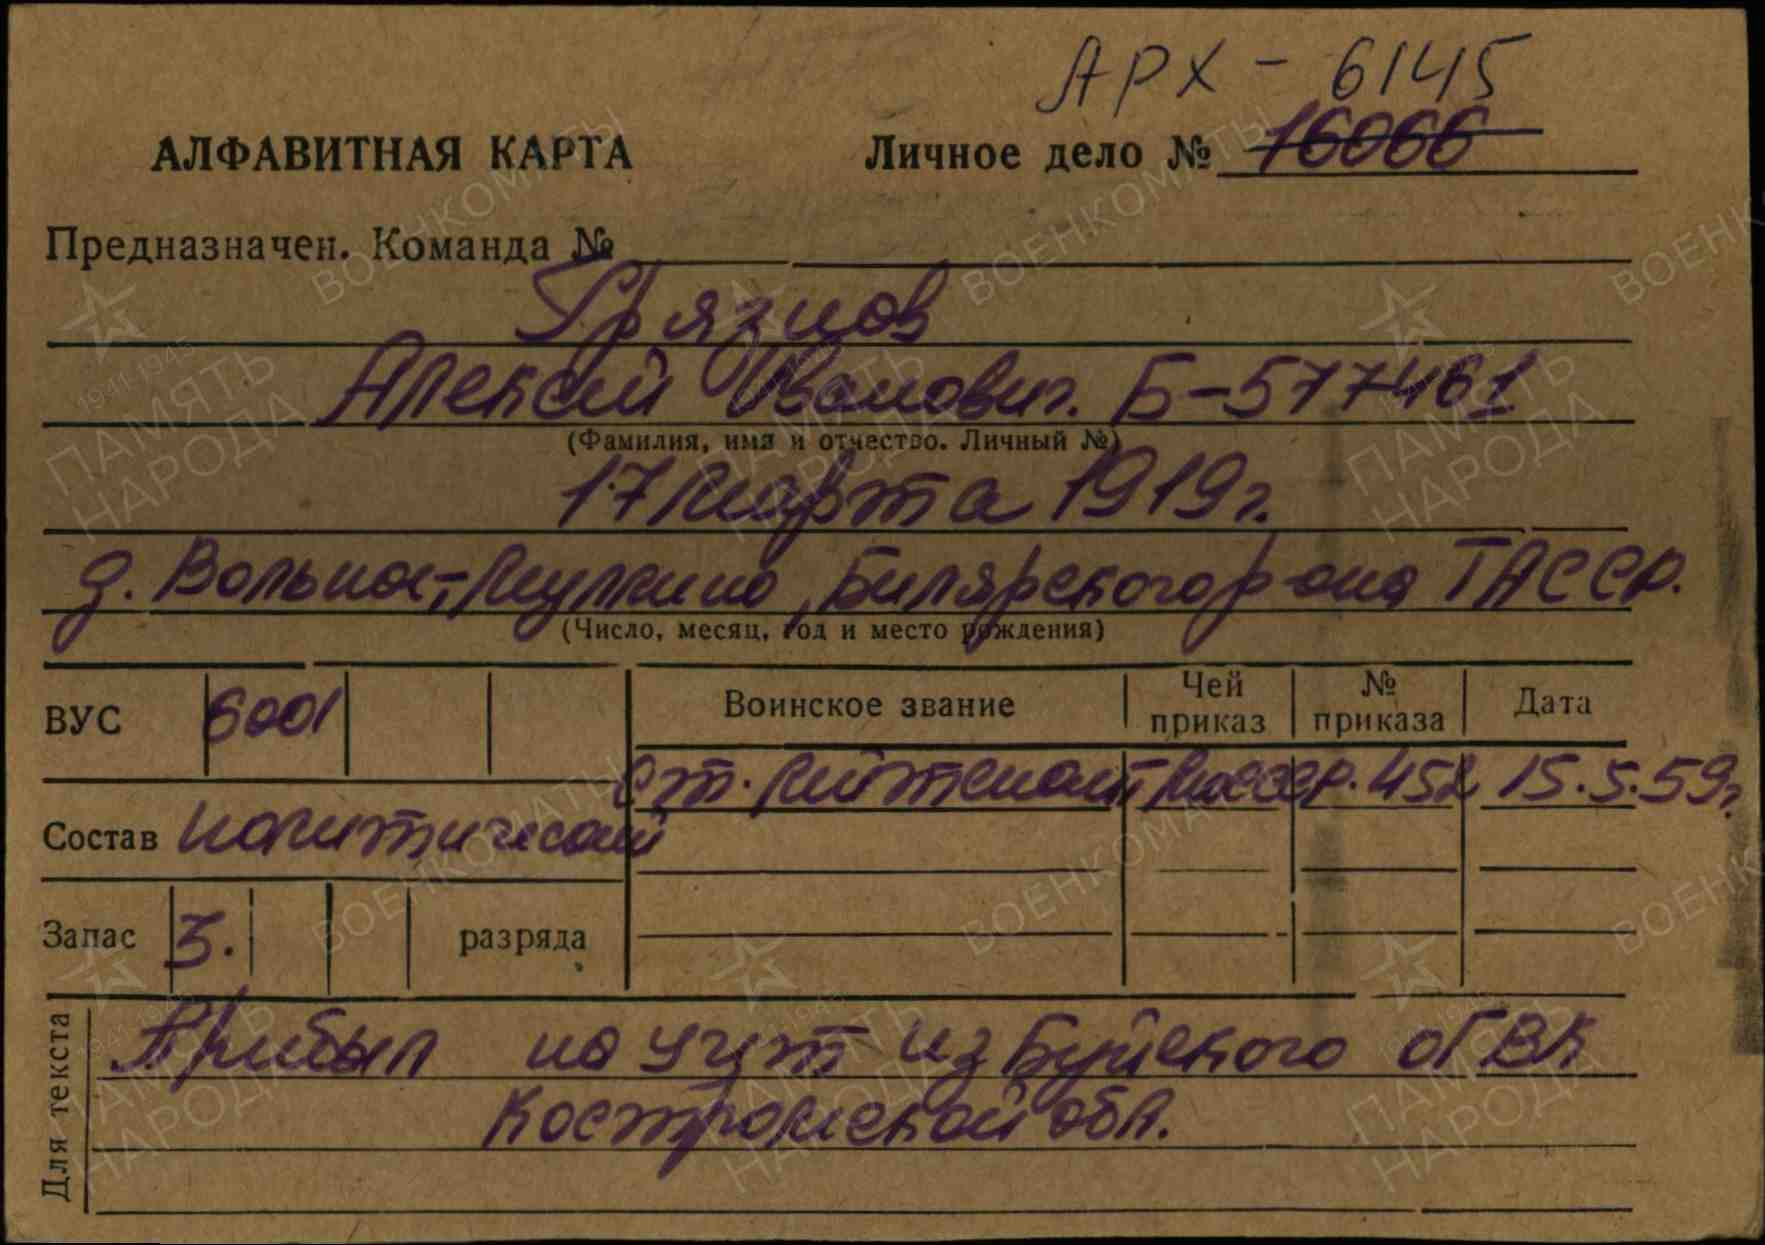 АРХ - 6145
АЛФАВИТНАЯ КАРТА Личное дело № 16066
Предназначен. Команда №
Грязнов
Алексей Иванович. Б-577461
(Фамилия, имя и отчество. Личный №)
17 марта 1919 г.
д. Вольно-, Билярского р-она ТАССР.
(Число, месяц, год и место рождения)
ВУС 6001 Воинское звание Чей приказ № приказа Дата
ст. лейтенант 452 15.5.59г.
Состав политический
Запас 3. разряда
Для текста
Прибыл на учёт из Буйского оГВК
Костромской обл.
ВОЕНКОМАТЫ
ПАМЯТЬ
НАРОДА
1941 1945